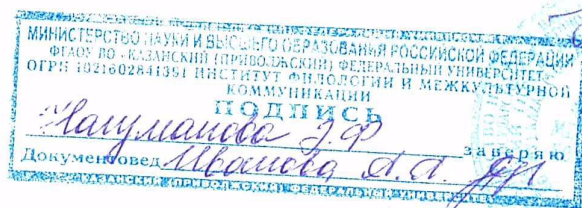 МИНИСТЕРСТВО НАУКИ И ВЫСШЕГО ОБРАЗОВАНИЯ РОССИЙСКОЙ ФЕДЕРАЦИИ
ФГАОУ ВО «КАЗАНСКИЙ (ПРИВОЛЖСКИЙ) ФЕДЕРАЛЬНЫЙ УНИВЕРСИТЕТ
ОГРН 1021602841391 ИНСТИТУТ ФИЛОЛОГИИ И МЕЖКУЛЬТУРНОЙ
КОММУНИКАЦИИ
ПОДПИСЬ
Нагуманова Э.Ф заверяю
Документовед Иванова А.А.
КАЗАНСКИЙ (ПРИВОЛЖСКИЙ) ФЕДЕРАЛЬНЫЙ УНИВЕРСИТЕТ